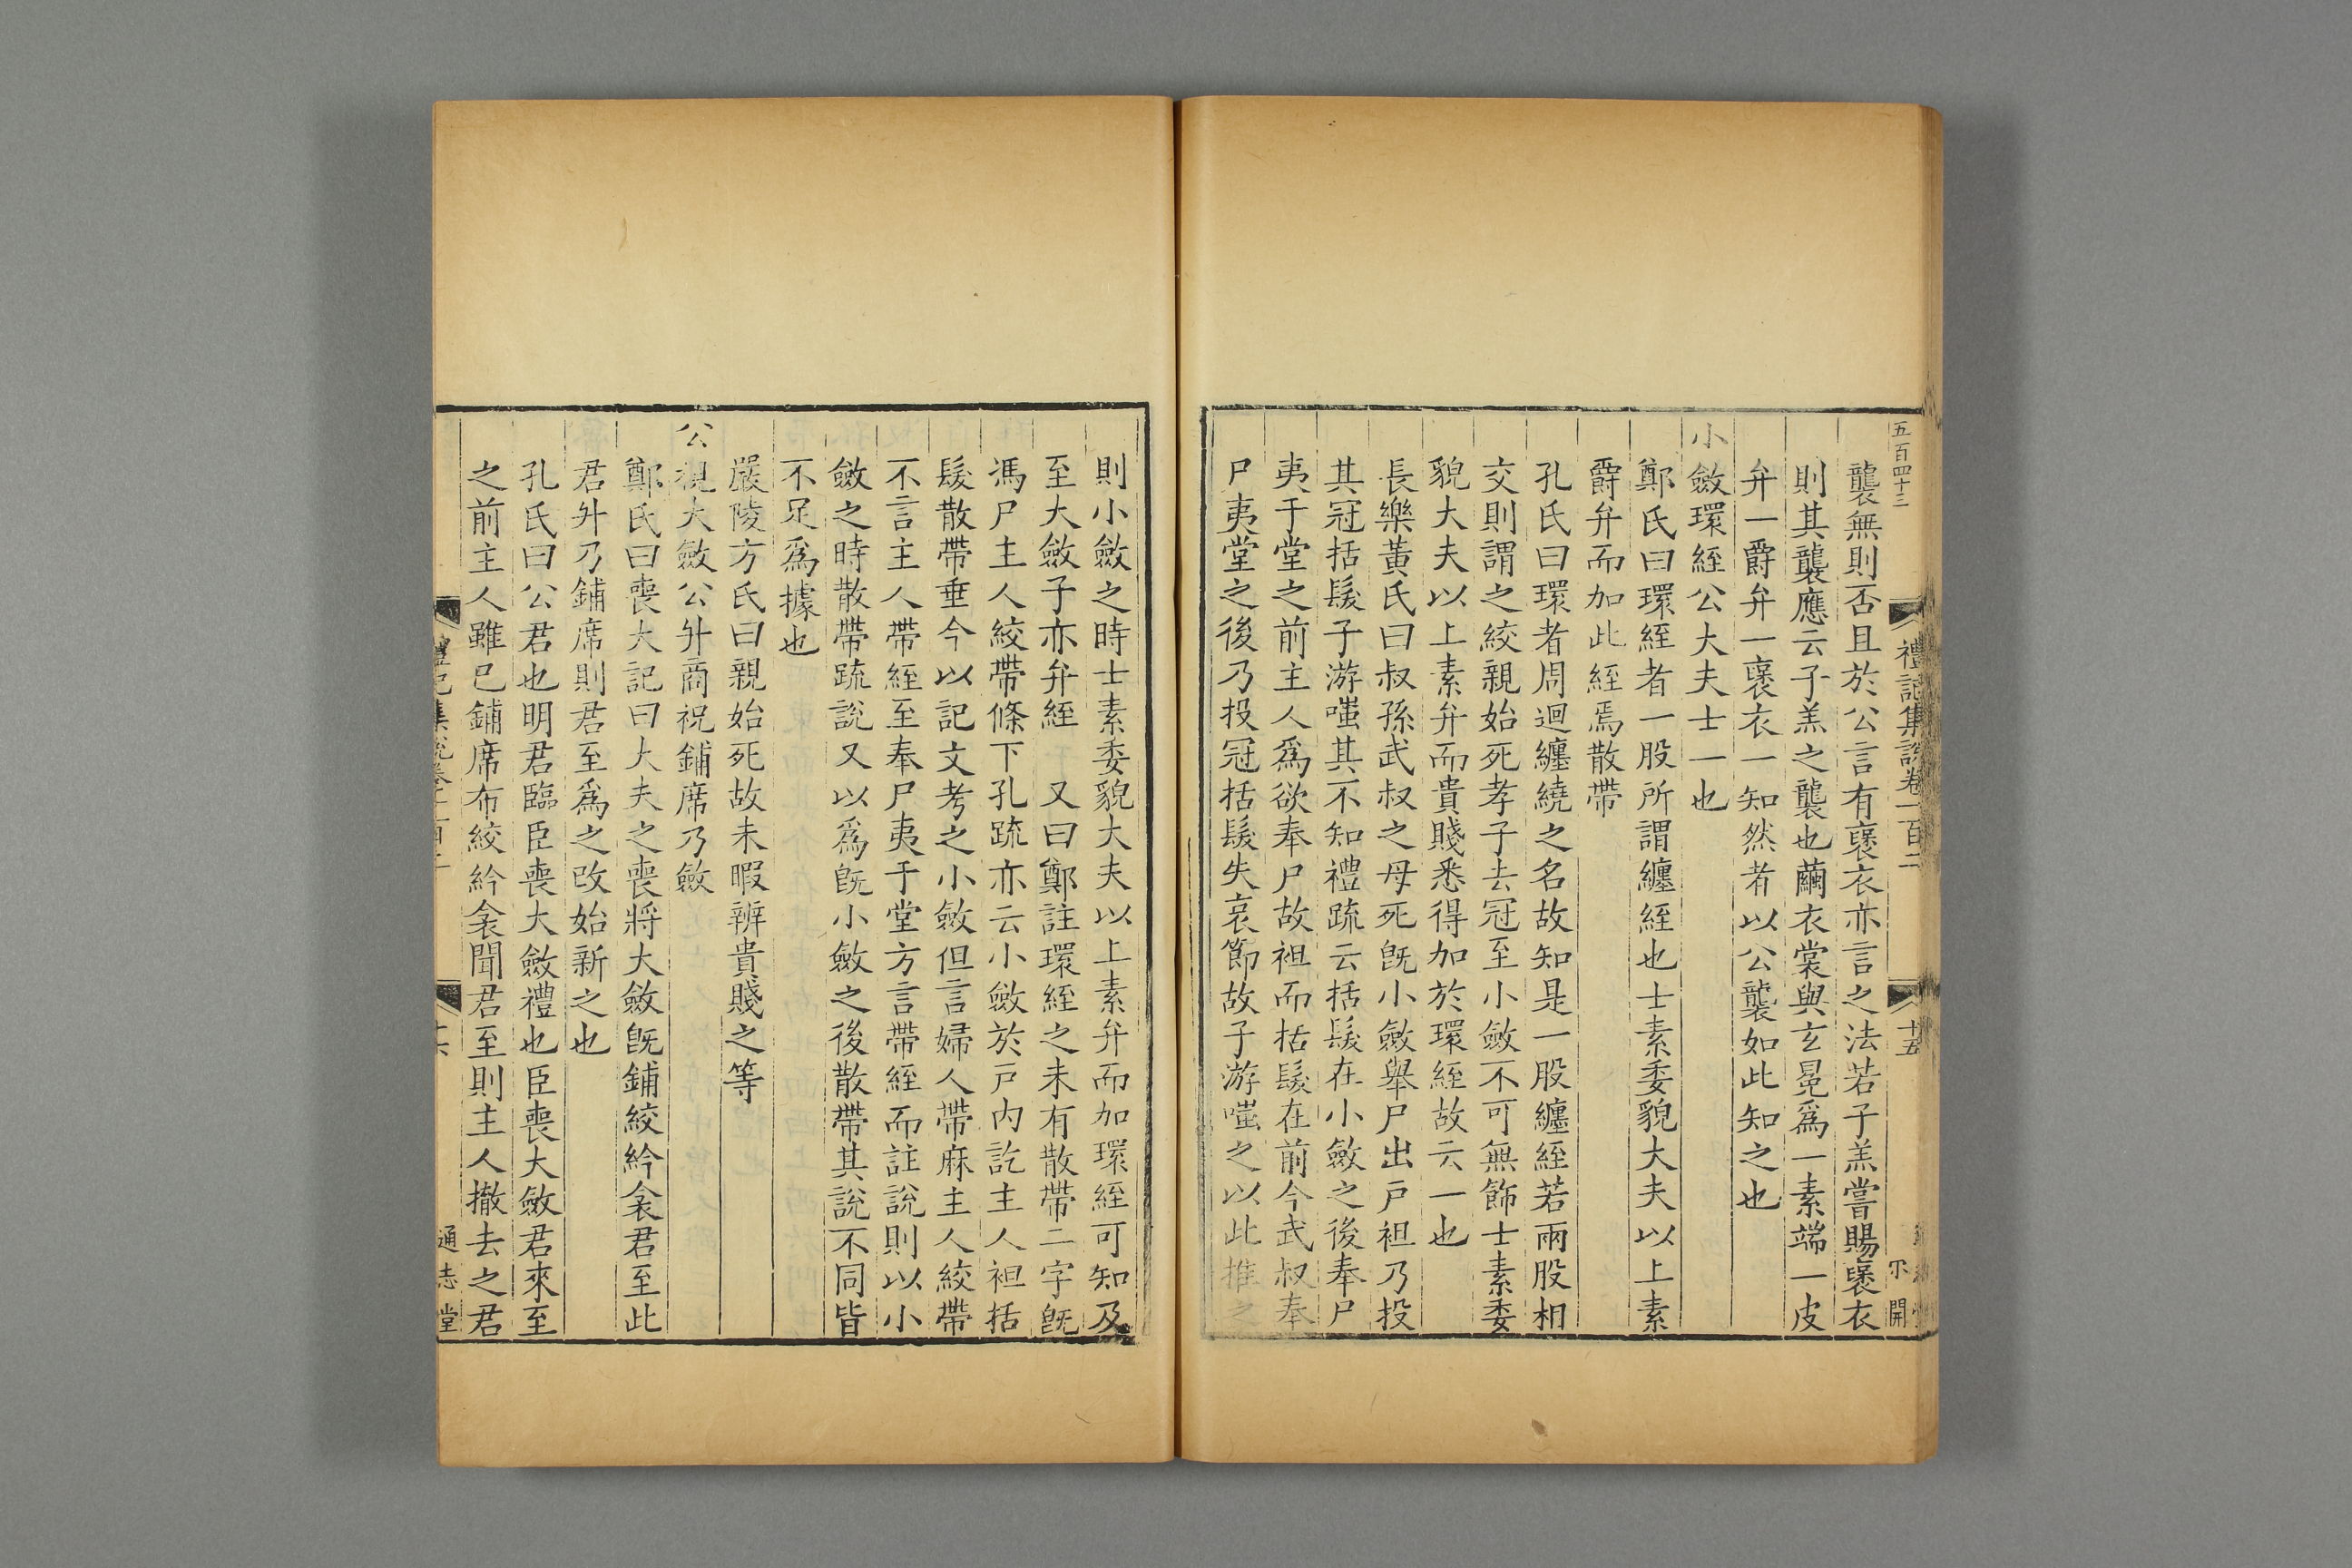 五百四十二
禮記集說卷一百二
十五
開
襲無則否且於公言有褒衣亦言之法若子羔嘗賜褒衣
則其襲應云子羔之襲也繭衣裳與玄冕爲一素端一皮
弁一爵弁一褒衣一知然者以公襲如此知之也
小斂環絰公大夫士一也
鄭氏曰環絰者一股所謂纏絰也士素委貌大夫以上素
爵弁而加此絰焉散帶
孔氏曰環者周迴纏繞之名故知是一股纏絰若兩股相
交則謂之絞親始死孝子去冠至小斂不可無飾士素委
貌大夫以上素弁而貴賤悉得加於環絰故云一也
長樂黃氏曰叔孫武叔之母死旣小斂舉尸出戶袒乃投
其冠括髮子游嗤其不知禮疏云括髮在小斂之後奉尸
夷于堂之前主人爲欲奉尸故袒而括髮在前今武叔奉
尸夷堂之後乃投冠括髮失哀節故子游嗤之以此推之
則小斂之時士素委貌大夫以上素弁而加環絰可知及
至大斂子亦弁絰 又曰鄭註環絰之末有散帶二字旣
馮尸主人絞帶條下孔疏亦云小斂於戶內訖主人袒括
髮散帶垂今以記文考之小斂但言婦人帶麻主人絞帶
不言主人帶絰至奉尸夷于堂方言帶絰而註說則以小
斂之時散帶疏說又以爲旣小斂之後散帶其說不同皆
不足爲據也
嚴陵方氏曰親始死故未暇辨貴賤之等
公視大斂公升商祝鋪席乃斂
鄭氏曰喪大記曰大夫之喪將大斂旣鋪絞紟衾君至此
君升乃鋪席則君至爲之改始新之也
孔氏曰公君也明君臨臣喪大斂禮也臣喪大斂君來至
之前主人雖已鋪席布絞紟衾聞君至則主人撤去之君
通志堂